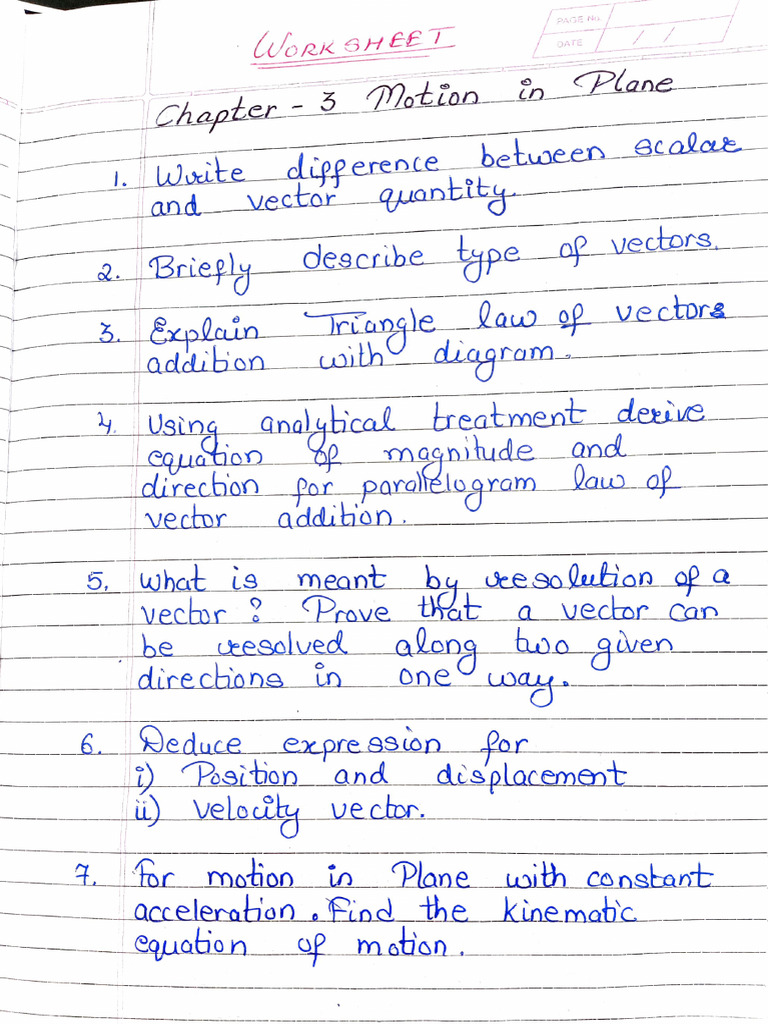 PAGE No.
DATE / /
WORKSHEET
Chapter - 3 Motion in Plane
1. Write difference between scalar
and vector quantity.
2. Briefly describe type of vectors.
3. Explain Triangle law of vectors
addition with diagram.
4. Using analytical treatment derive
equation of magnitude and
direction for parallelogram law of
vector addition.
5. What is meant by resolution of a
vector? Prove that a vector can
be resolved along two given
directions in one way.
6. Deduce expression for
i) Position and displacement
ii) velocity vector.
7. For motion in Plane with constant
acceleration. Find the kinematic
equation of motion.